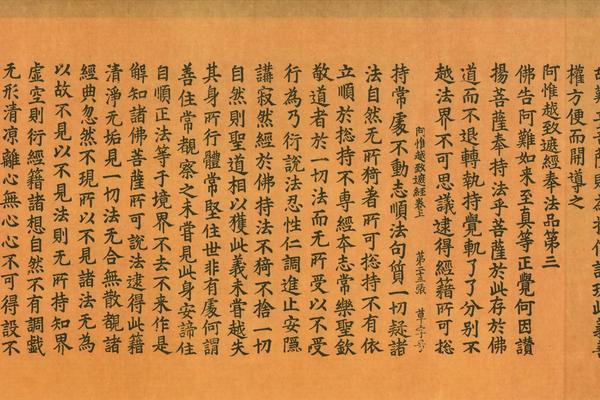 權方便而開導之
阿惟越致遮經奉法品第三
佛告阿難如來至真等正覺何因讚
揚菩薩奉持法乎菩薩於此存於佛
道而不退轉執持覺軌了了分別不
越法界不可思議逮得經籍所可捴
阿惟越致遮經卷三 第三張
持常處不動志順法句質一切疑諸
法自然无所猗著所可捴持不有依
立順於捴持不専經本志常樂聖欽
敬道者於一切法而无所受以不受
行為乃衍說法忍性仁調進止安隱
講寂然經於佛持法不猗不捨一切
自然則聖道相以獲此義未甞越失
其身所行體常堅住世非有處何謂
善住常觀察之未甞見此身安諦住
自順正法等于境界不去不来作是
解知諸佛菩薩所可說法逮得此籍
清淨无垢見一切法无合無散覩諸
經典忽然不現所以不見諸法无為
以故不見以不見法則无所持知界
虛空則衍經籍諸想自然不有調戯
无形清凉離心無心心不可得設不